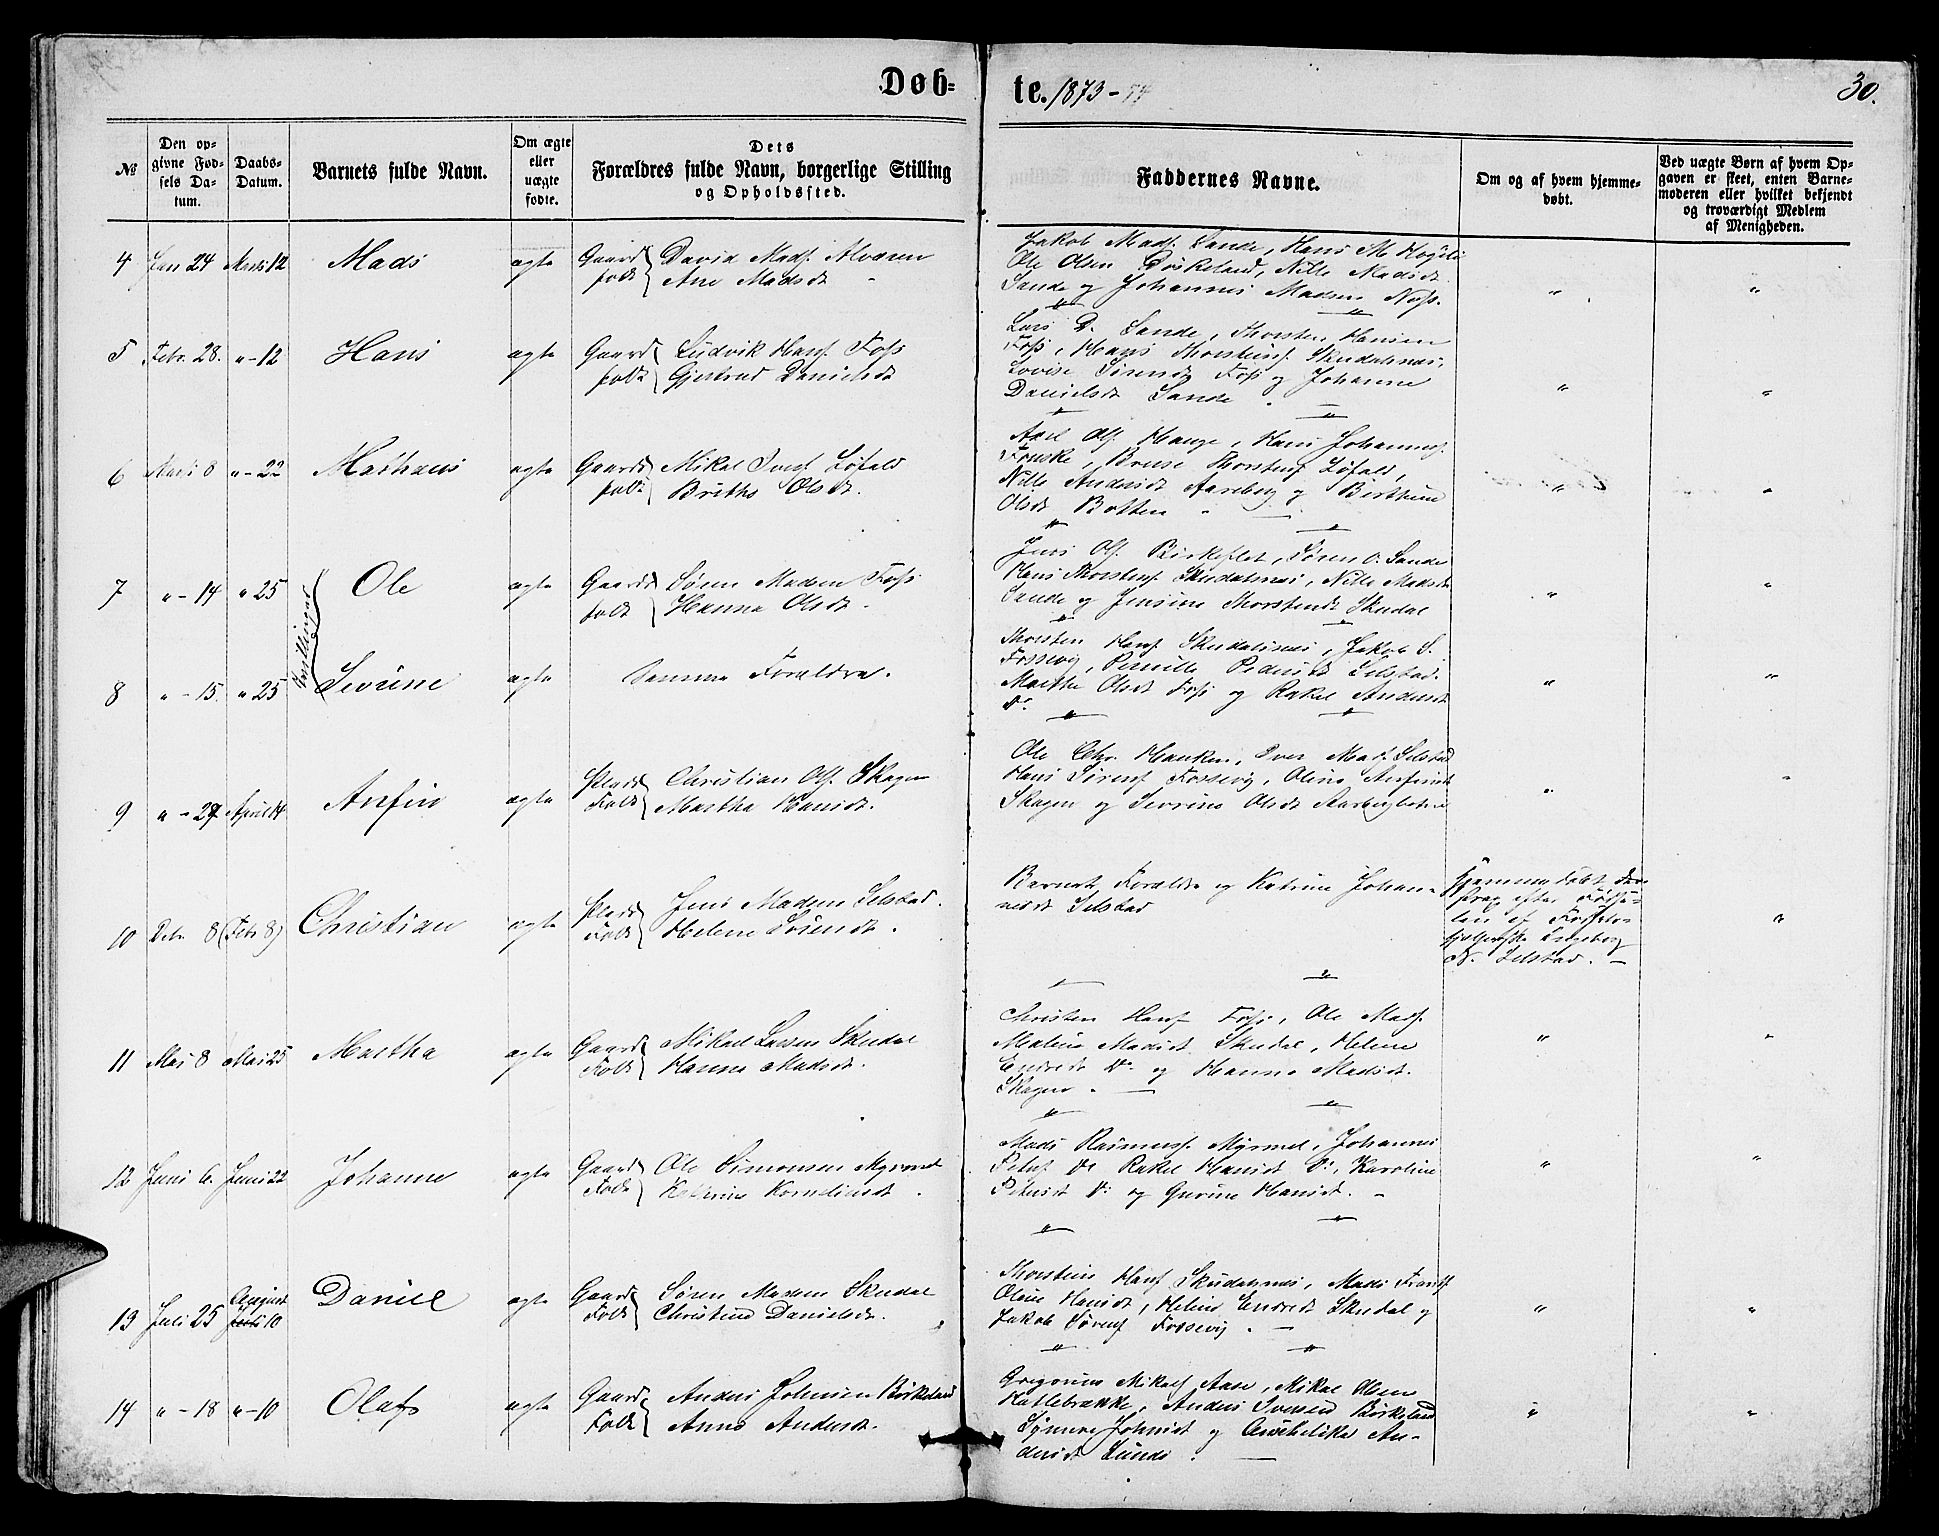 Døb=
te. 1873-74
30.
№
Den op=
givne Fød=
sels Da=
tum.
Daabs=
Datum.
Barnets fulde Navn.
Om ægte
eller
uægte
fødte.
Dets
Forældres fulde Navn, borgerlige Stilling
og Opholdssted.
Faddernes Navne.
Om og af hvem hjemme=
døbt.
Ved uægte Børn af hvem Op=
gaven er skeet, enten Barne=
moderen eller hvilket bekjendt
og troværdigt Medlem
af Menigheden.
4 Jan 24 Marts 12 Mads ægte Gaard folk David Mads. Alværen
Ane Madsdt
Jakob Mads. Sande, Hans M.
Ole Olsen Birkeland, Nille Madsdt
Sande og Johannes Madsen
5 Febr. 28. "-12 Hans ægte Gaard folk Ludvik Hans. Foss
Gjertrud Danielsdt
Lars D. Sande, Thorsten Hansen
Foss, Hans Thorstens. Skudalsnæs,
Lovise Sørensdt Foss og Johanne
Danielsdt Sande
6 Marts 8 "-22 Mathæus ægte Gaard folk Mikal Ivers. Løfald
Brithe Olsdt.
Axel Ols. Hauge, Hans Johannes.
Thorstens. Løfald,
Nille Andersdt Aareberg og Birthine
Olsdt Botten
7 "-14 "25 Ole ægte Gaard folk Søren Madsen Foss
Hanna Olsdt.
Jens Ols. Birkeflet, Søren O. Sande
Hans Thorstens. Skudalsnæs, Nille Madsdt
Sande og Jensine Thorstensdt Skudal
Tvillinger
8 "-15. "25 Sevrine ægte Samme Forældre.
Thorsten Hans. Skudalsnæs, Jakob S.
Fossevig, Pernille Pedersdt Selstad.
Marthe Olsdt Foss og Rakel Andersdt
Do
9 "-27 April 14 Anfin ægte Plads Folk Christian Ols. Skagen
Martha Hansdt.
Ole Chr. Hauken, Iver Mad. Selstad
Hans Sørens. Fossevig, Oline Anfinsdt
Skagen og Sevrine Olsdt
10 Febr 8 (Febr 8) Christian ægte Plads Folk Jens Madsen Selstad.
Helene Sørensdt.
Barnets Forældre og Katrine Johan=
nesdt Selstad
hjemme døbt
strax efter Fødse=
len af
hjælperske Ingeborg
N. Selstad.
11 Mai 8 Mai 25 Martha ægte Gaard Folk Mikael Larsen Skudal
Hanna Madsdt.
Christen Hans. Foss, Ole Mads.
Malene Madsdt Skudal, Helene
Endredt Do og Hanna Madsdt.
Skagen
12 Juni 6. Juni 22 Johanne ægte Gaard Folk Ole Simonsen Myrmel
Katrine Korneliusdt
Mads Rasmus. Myrmel, Johannes
Peters. Do Rakel Hansdt Do, Karoline
Petersdt Do og Gurine Hansdt.
13 Juli 25 August
Juli 10 Daniel ægte Gaard Folk Søren Madsen Skudal
Christine Danielsdt.
Thorstein Hans. Skudalsnæs, Mads Frants.
Oline Hansdt, Helene Endredt Skudal og
Jakob Sørens. Fossevig.
14 "-18 "-10 Olaf ægte Gaard Folk Anders Johnsen Birkeland
Anne Andersdt.
Gregorius Mikals. Aase, Mikal Olsen
Katlebrække, Anders Iversen Birkeland
Synneve Johnsdt og An=
dersdt Lunde.